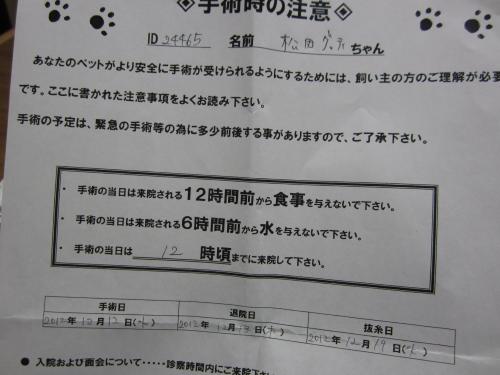 ◈手術時の注意◈
ID 24465 名前 松田グッティちゃん
あなたのペットがより安全に手術が受けられるようにするためには、飼い主の方のご理解が必要
です。ここに書かれた注意事項をよくお読み下さい。
手術の予定は、緊急の手術等の為に多少前後する事がありますので、ご了承下さい。
・ 手術の当日は来院される12時間前から食事を与えないで下さい。
・ 手術の当日は来院される6時間前から水を与えないで下さい。
・ 手術の当日は 12 時頃までに来院して下さい。
手術日 退院日 抜糸日
2012年12月12日(水) 2012年12月13日(木) 2012年12月19日(水)
● 入院および面会について・・・・・診察時間内にご来院下さい